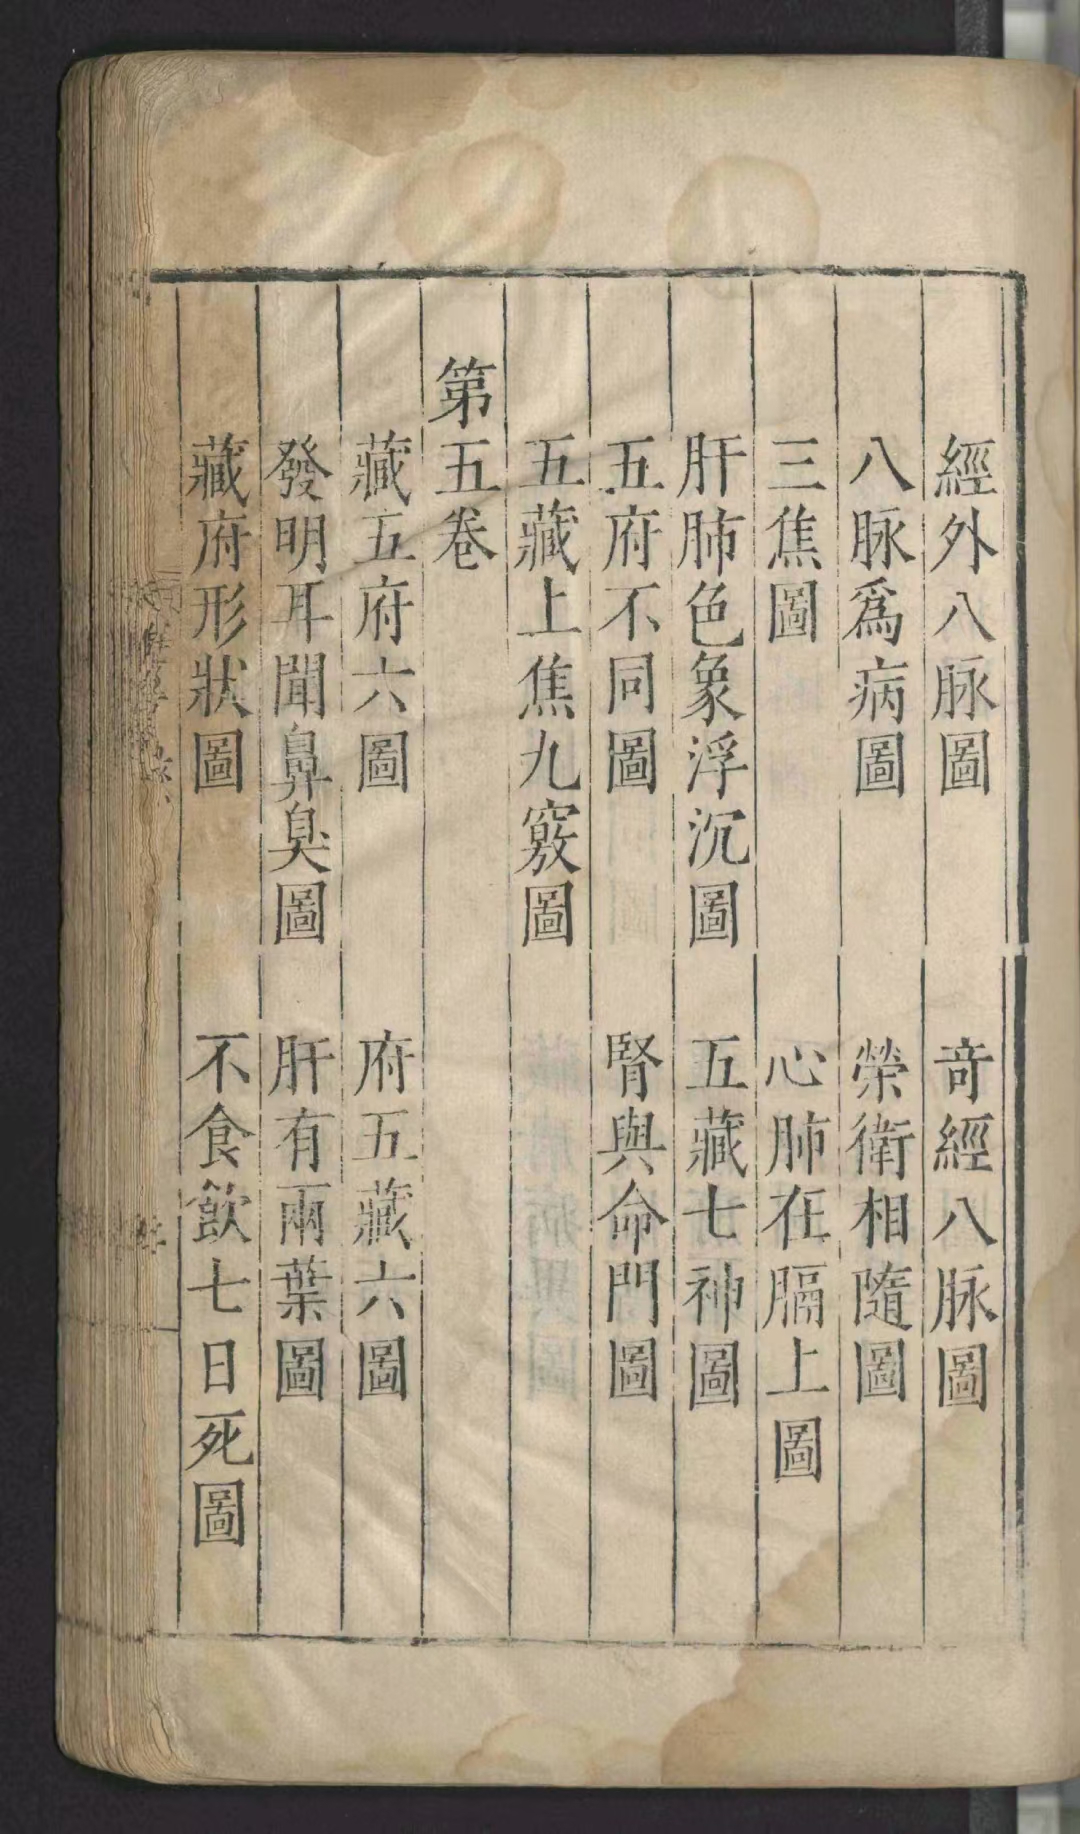 經外八脉圖　竒經八脉圖
八脉爲病圖　榮衛相隨圖
三焦圖　心肺在膈上圖
肝肺色象浮沉圖　五藏七神圖
五府不同圖　腎與命門圖
五藏上焦九竅圖
第五卷
藏五府六圖　府五藏六圖
發明耳聞鼻臭圖　肝有兩葉圖
藏府形狀圖　不食飲七日死圖